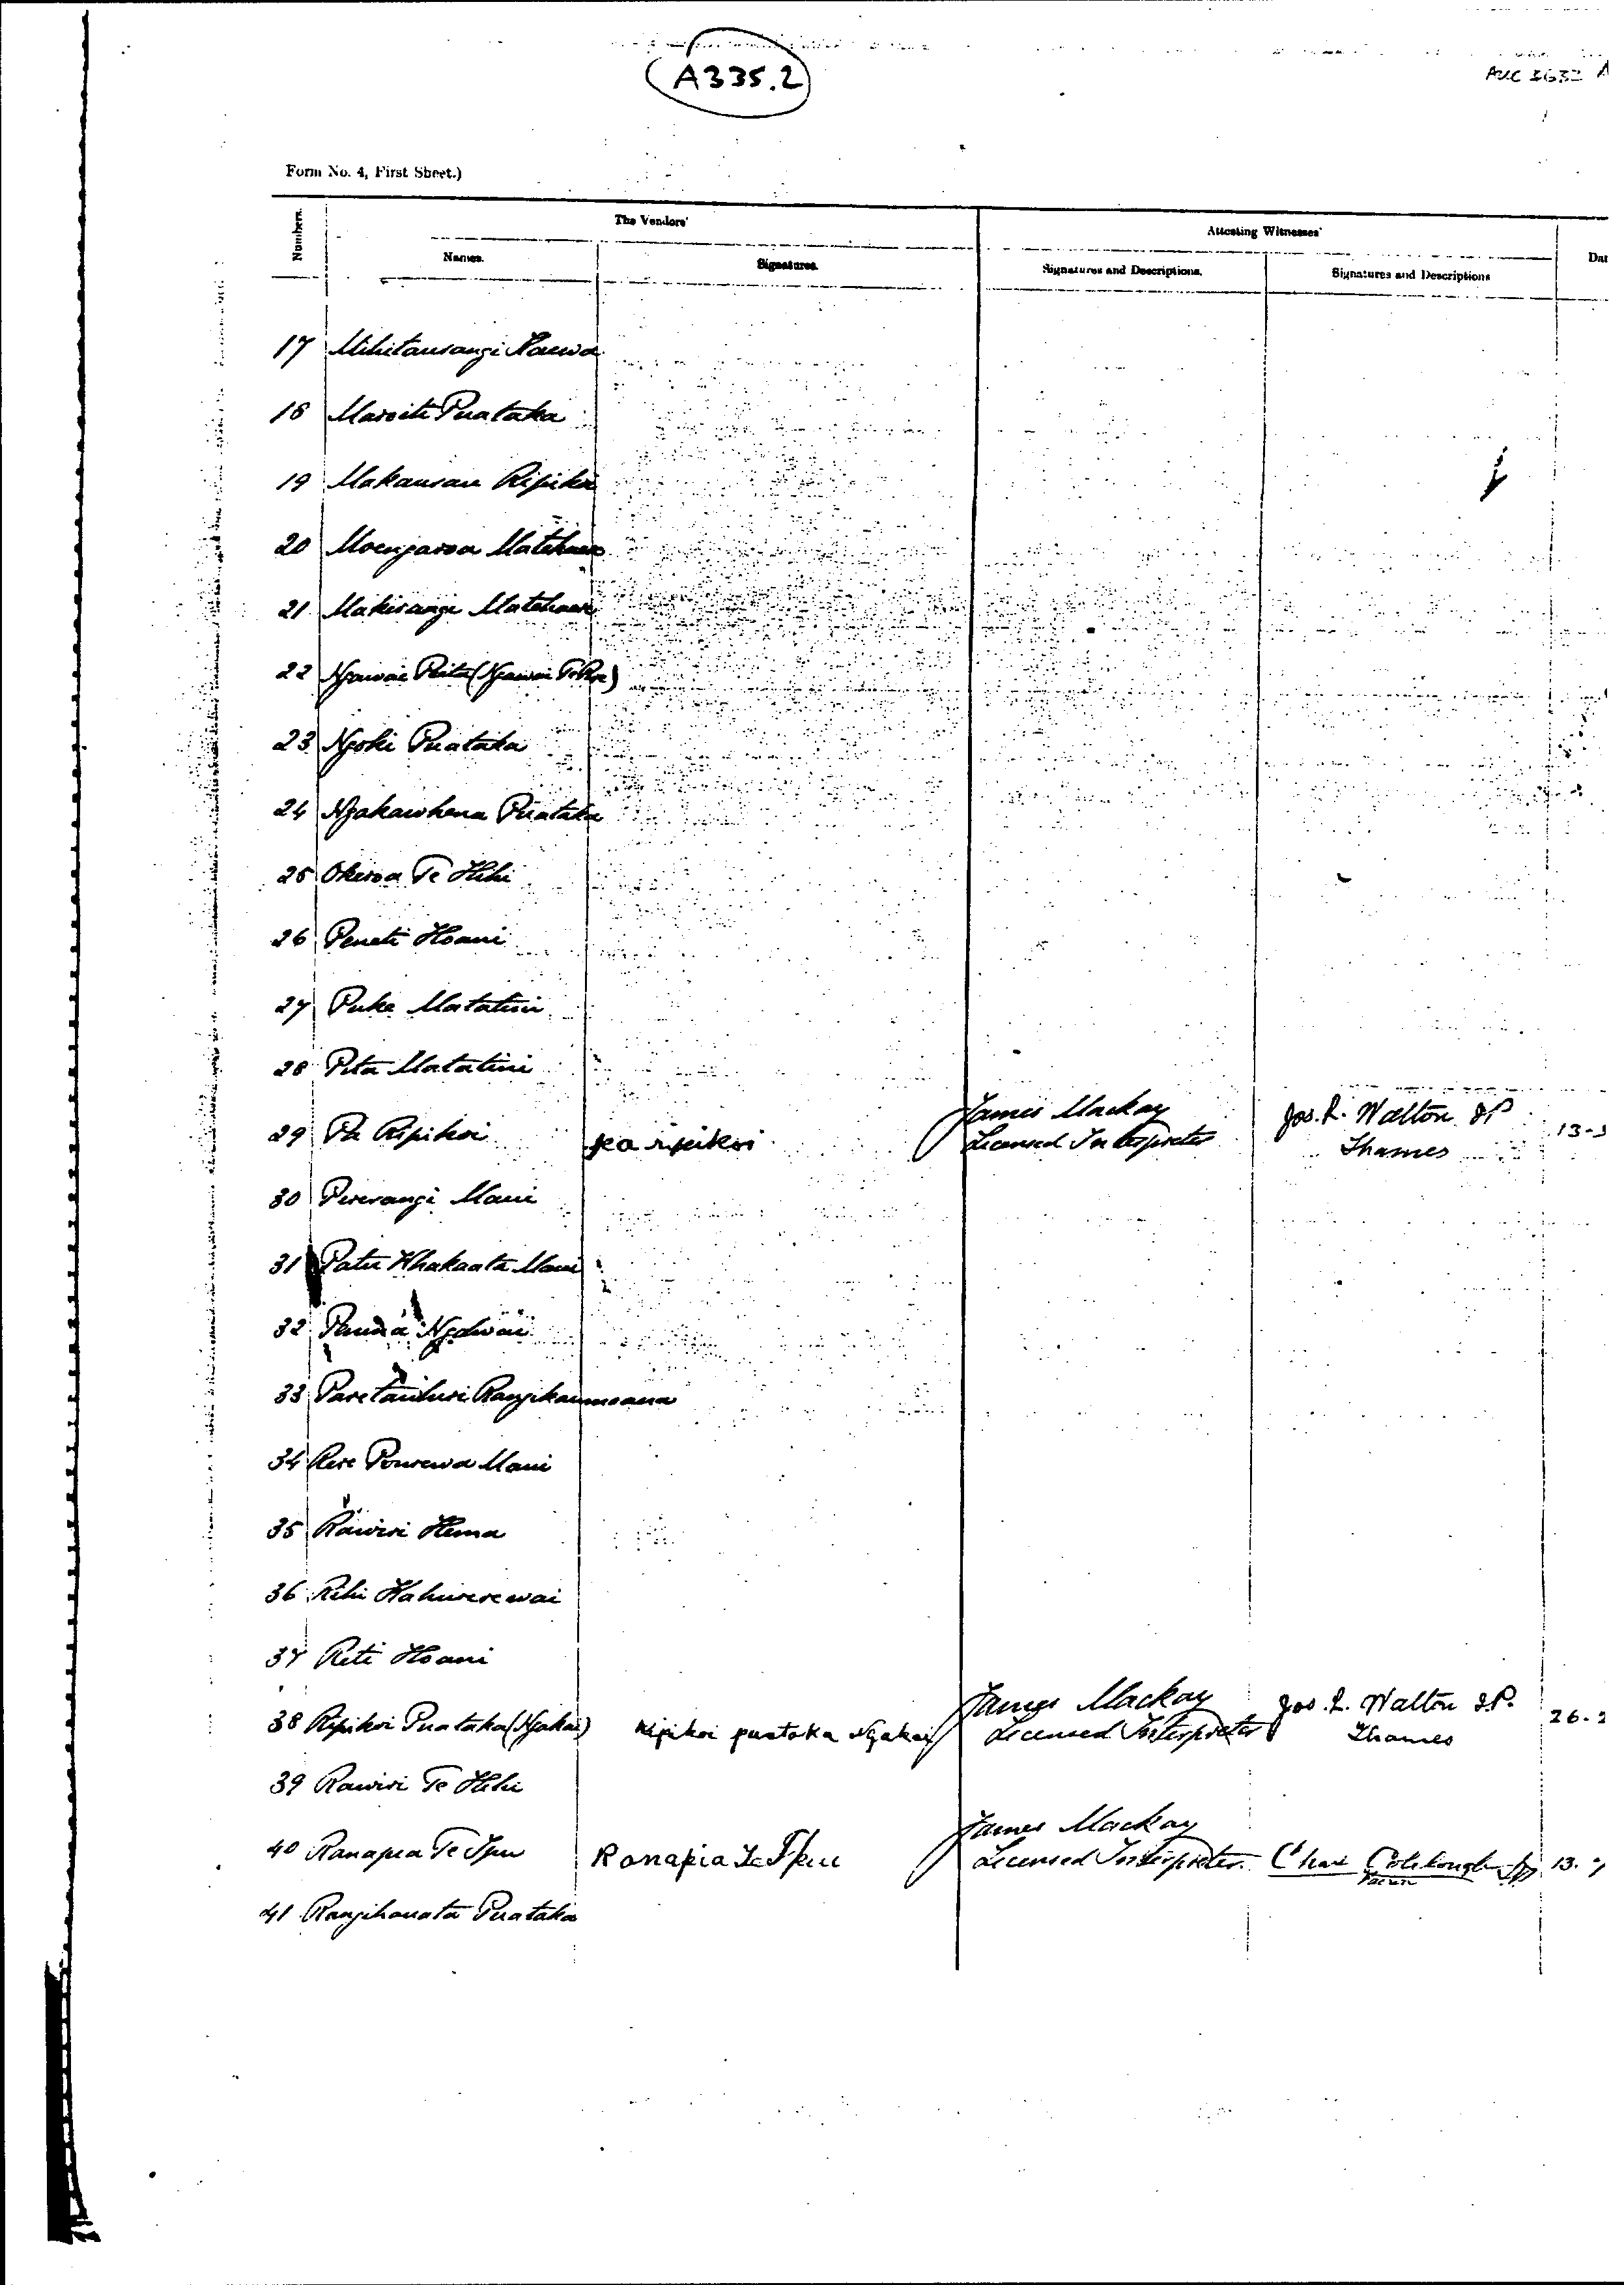 A335.2
AUC 3632 A
Form No. 4, First Sheet.)
Numbers.
The Vendors'
Attesting Witnesses'
Names.
Signatures.
Signatures and Descriptions.
Signatures and Descriptions
Dat
17 Mihitaurangi
18 Maroiti Puataka
19 Makaurau Ripikoi
20 Moengaroa Matehaere
21 Makirangi Matehaere
22 Ngawai Pita (Ngawai
23 Ngohi Puataka
24 Ngakawhena Puataka
25 Okeroa Te Hihi
26 Peneti Hoani
27 Puke Matatini
28 Pita Matatini
29 Pa Ripikoi pa ripikoi James Mackay Jos. L. Walton JP
Licensed Interpreter Thames 13-
30 Pererangi Maui
31 Patu Whakaata Maui
32 Ngawai
33 Paretauhuri Rangikaumoana
34 Rere Pourewa Maui
35 Rawiri Hema
36 Rihi Kahurerewai
37 Reti Hoani
38 Ripikoi Puataka (Ngakai) Ripikoi puataka Ngakai James Mackay Jos. L. Walton J.P.
Licensed Interpreter Thames 26-2
39 Rawiri Te Hihi
40 Ranapia Te Ipu Ranapia Te Ipu James Mackay
Licensed Interpreter. Chas Colclough JP 13.
41 Rangihauata Puataka